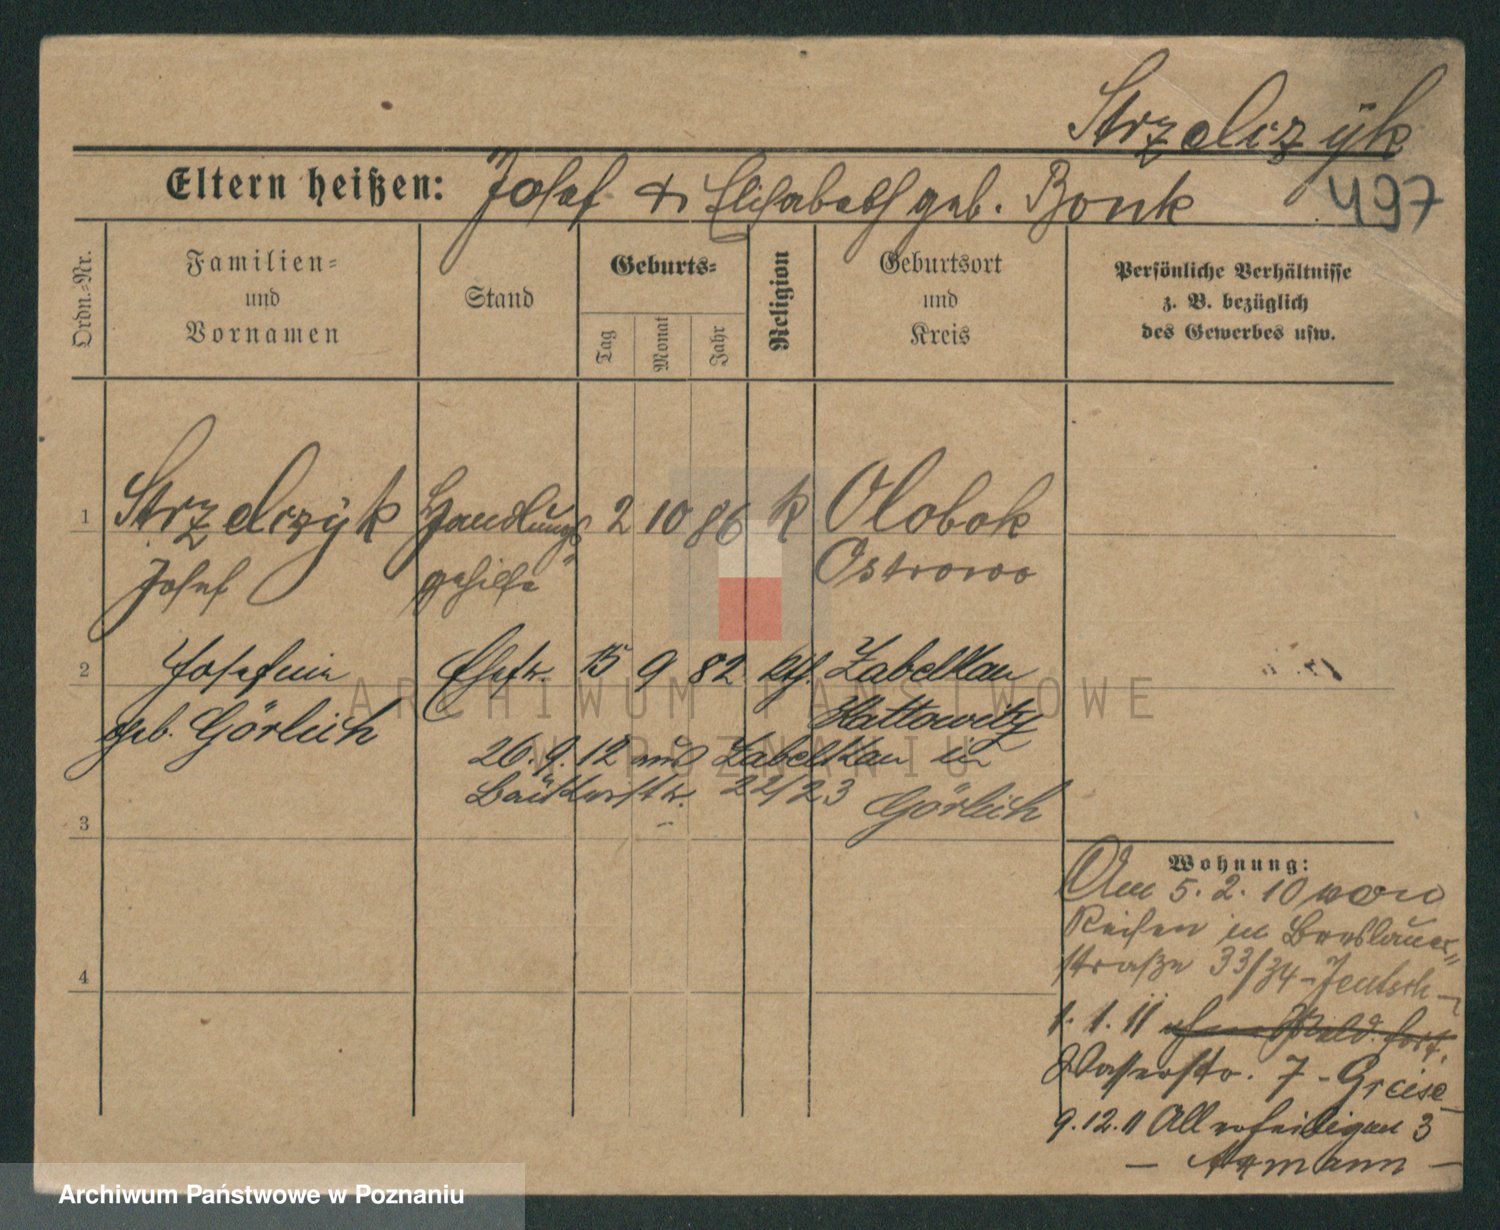 Strzelczyk
Eltern heißen: Josef & Elisabeth geb. Bonk
497
Ordn.-Nr.
Familien-
und
Vornamen
Stand
Geburts-
Tag
Monat
Jahr
Religion
Geburtsort
und
Kreis
Persönliche Verhältnisse
z. B. bezüglich
des Gewerbes usw.
1 Strzelczyk Handlungs 2 10 86 k Olobok
Josef gehilfe Ostrowo
2 Josefine Ehefr. 15 9 82 kth. Zabelkau
geb. Görlich Kattowitz
26.9.12 aus Zabelkau in
22/23 Görlich
3
Wohnung:
Am 5.2.10 von
Reisen in Breslauer-
straße 33/34 - Jentsch -
1.1.11
Wasserstr. 7 - Greise
9.12.11 Allerheiligen 3
4
ARCHIWUM PAŃSTWOWE
W POZNANIU
Archiwum Państwowe w Poznaniu